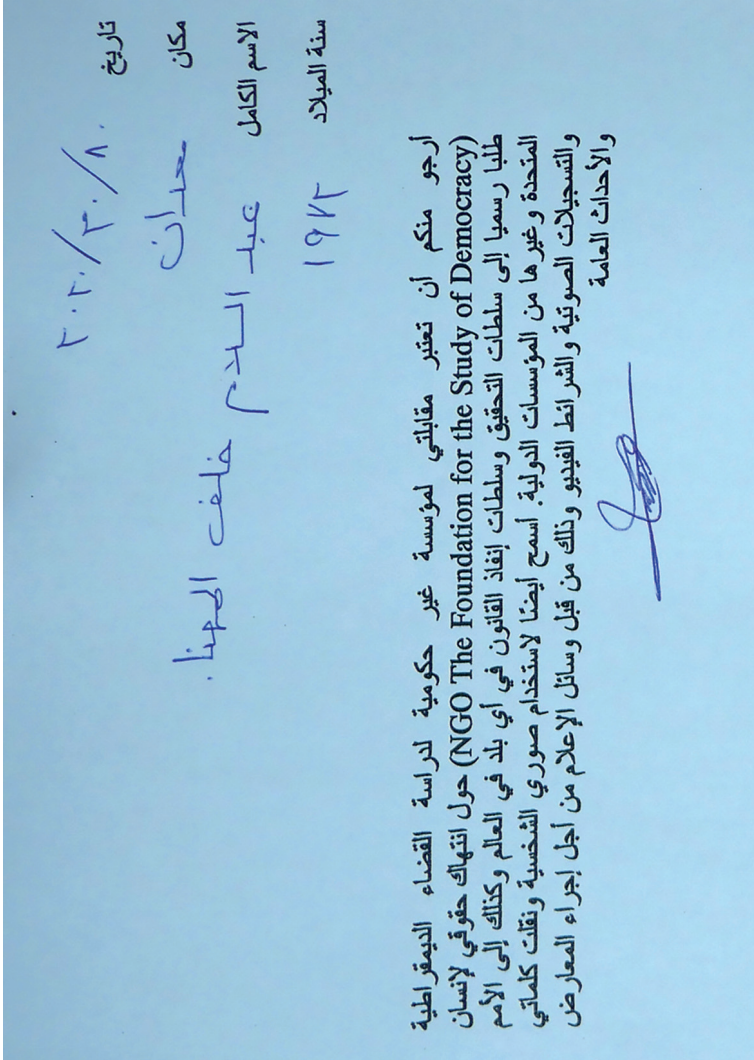 تاريخ ٢٠٢٠/٣٠/٨٠
مكان معدان
الاسم الكامل عبد السلام خلف المهنا.
سنة الميلاد ١٩٧٢
أرجو منكم أن تعتبر مقابلتي لمؤسسة غير حكومية لدراسة القضاء الديمقراطية
(NGO The Foundation for the Study of Democracy) حول انتهاك حقوقي لإنسان
طلبا رسميا إلى سلطات التحقيق وسلطات إنفاذ القانون في أي بلد في العالم وكذلك إلى الأمم
المتحدة وغيرها من المؤسسات الدولية. اسمح أيضًا لاستخدام صوري الشخسية ونقلت كلماتي
والتسجيلات الصوتية والشرائط الفيديو وذلك من قبل وسائل الإعلام من أجل إجراء المعارض
والأحداث العامة